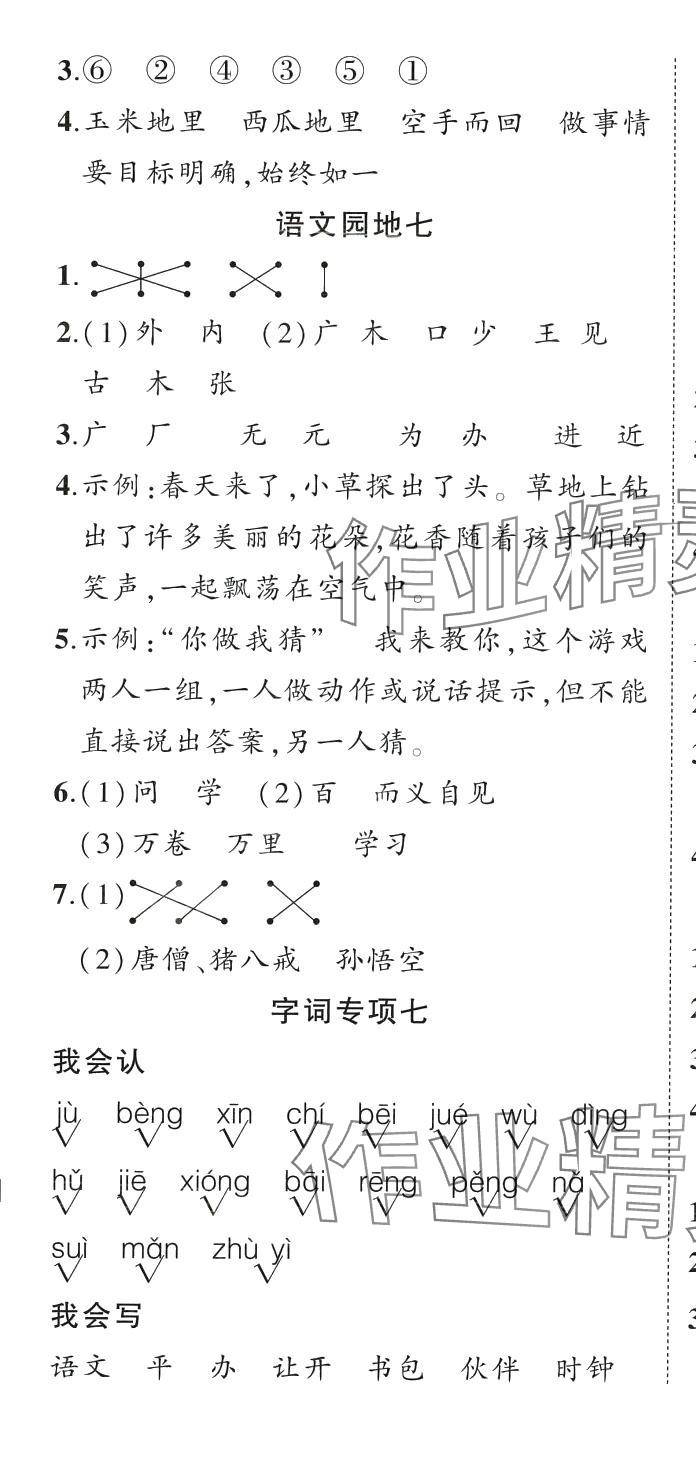 3.⑥ ② ④ ③ ⑤ ①
4.玉米地里 西瓜地里 空手而回 做事情
要目标明确,始终如一
语文园地七
1.
2.(1)外 内 (2)广 木 口 少 王 见
古 木 张
3.广 厂 无 元 为 办 进 近
4.示例:春天来了,小草探出了头。草地上钻
出了许多美丽的花朵,花香随着孩子们的
笑声,一起飘荡在空气中。
5.示例:“你做我猜” 我来教你,这个游戏
两人一组,一人做动作或说话提示,但不能
直接说出答案,另一人猜。
6.(1)问 学 (2)百 而义自见
(3)万卷 万里 学习
7.(1)
(2)唐僧、猪八戒 孙悟空
字词专项七
我会认
jù bèng xīn chí bēi jué wù dìng
hǔ jiē xióng bāi rēng pěng nǎ
suì mǎn zhù yì
我会写
语文 平 办 让开 书包 伙伴 时钟
作业精
作业精